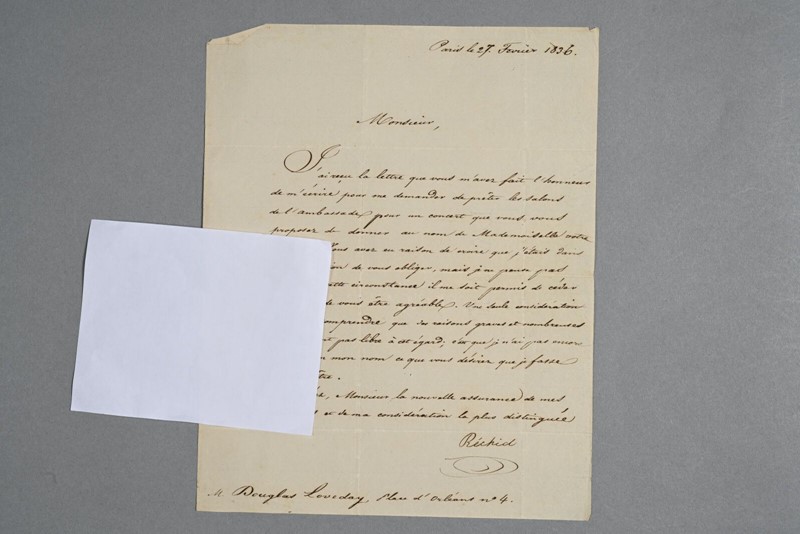 Paris le 27. Fevrier 1836.
Monsieur,
J'ai reçu la lettre que vous m'avez fait l'honneur
de m'écrire pour me demander de prêter les salons
de l'ambassade pour un concert que vous vous
proposez de donner au nom de Mademoiselle votre
vous avez eu raison de croire que j'étais dans
de vous obliger, mais je ne pense pas
circonstance il me soit permis de céder
de vous être agréable. Une seule considération
comprendre que des raisons graves et nombreuses
pas libre à cet égard; c'est que je n'ai pas encore
mon nom ce que vous désirez que je fasse
Monsieur la nouvelle assurance de mes
et de ma considération la plus distinguée
Réchid
M. Douglas Loveday, Place d'Orléans no 4.